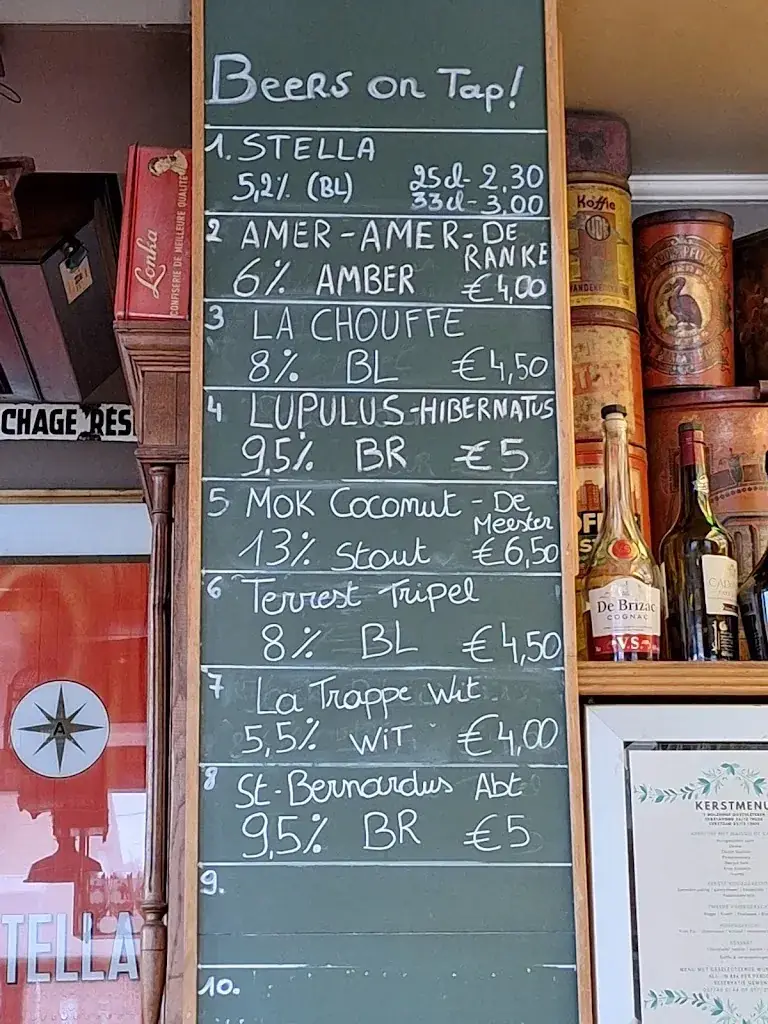 Beers on Tap!
1. STELLA
5,2% (BL) 25cl- 2.30
33cl- 3.00
2 AMER-AMER-DE
RANKE
6% AMBER €4,00
3 LA CHOUFFE
8% BL €4,50
4 LUPULUS-HIBERNATUS
9,5% BR €5
5 MOK Coconut - De
Meester
13% Stout €6,50
6 Terrest Tripel
8% BL €4,50
7 La Trappe Wit
5,5% WIT €4,00
8 St-Bernardus Abt
9,5% BR €5
9.
10.
Lonka
CONFISERIE DE MEILLEURE QUALITÉ
CHAGE RÉS
A
TELLA
Koffie
De Brizac
COGNAC
VS
KERSTMENU